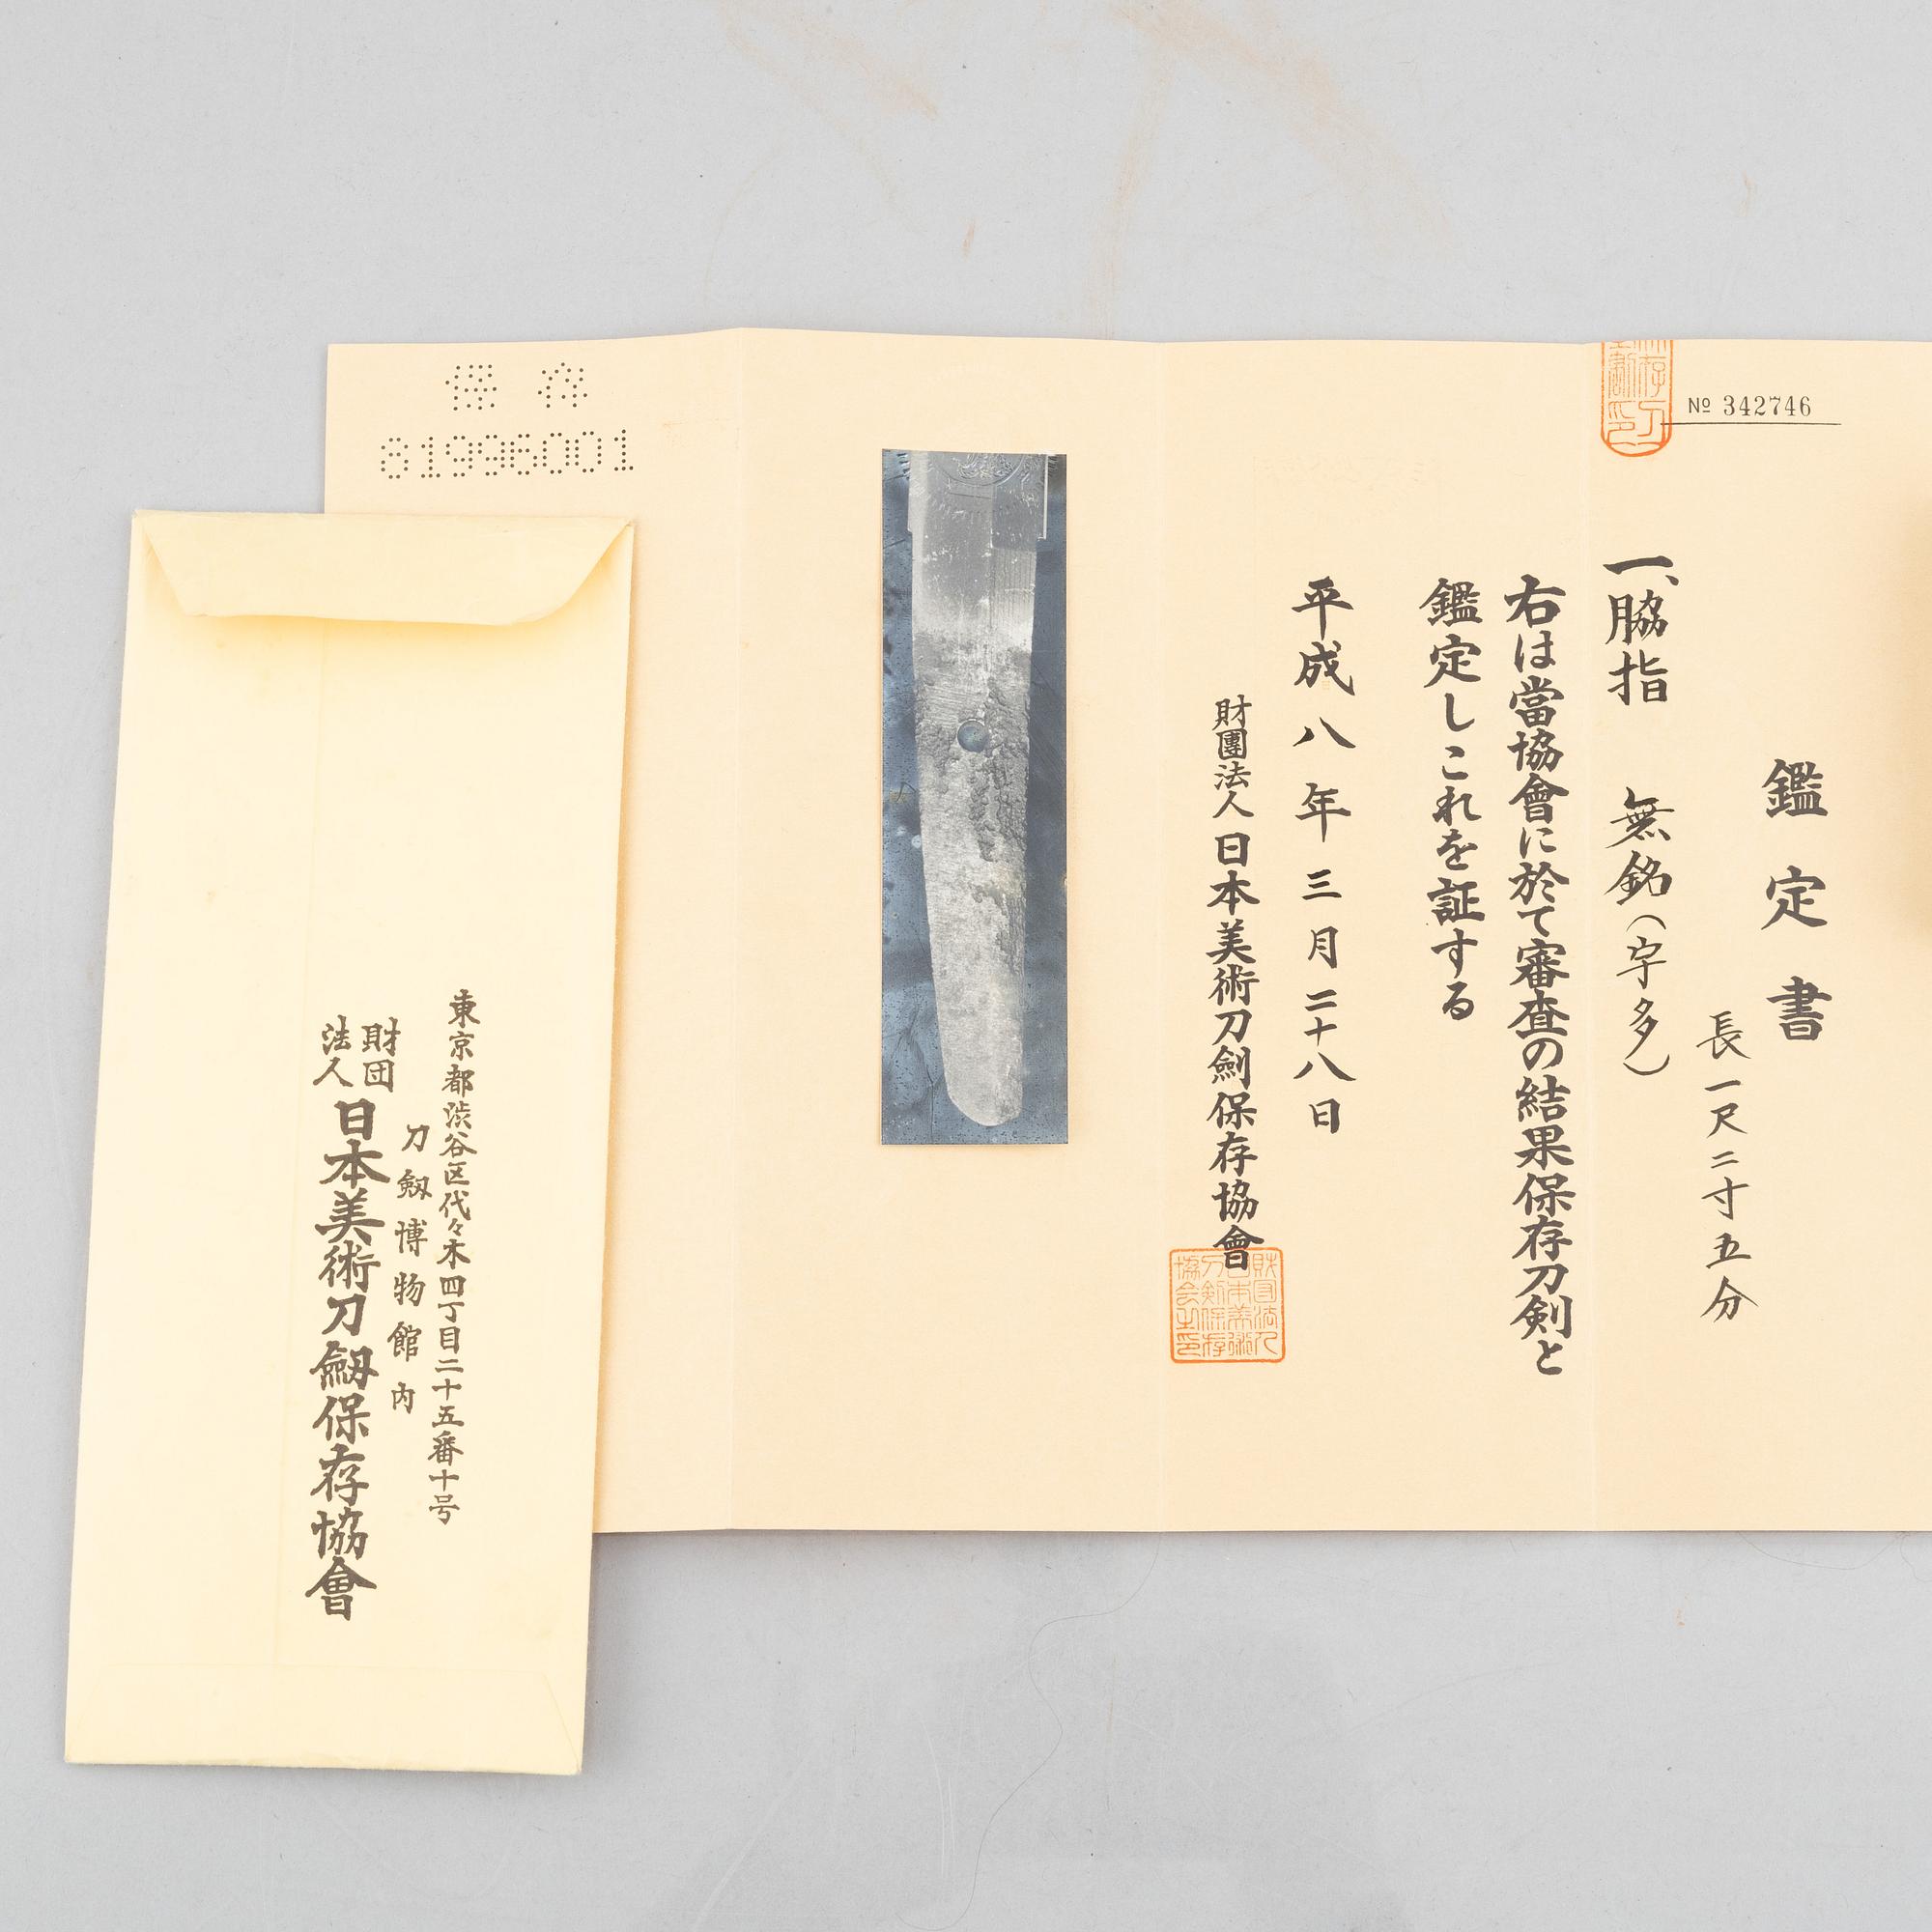 № 342746
鑑定書
長一尺二寸五分
一、脇指 無銘(宇多)
右は當協會に於て審査の結果保存刀剣と
鑑定しこれを証する
平成八年三月二十八日
財團法人日本美術刀劍保存協會
財団法人
日本美術
刀剣保存
協会之印
保存
81996001
東京都渋谷区代々木四丁目二十五番十号
刀劔博物館内
財団法人日本美術刀劔保存協會